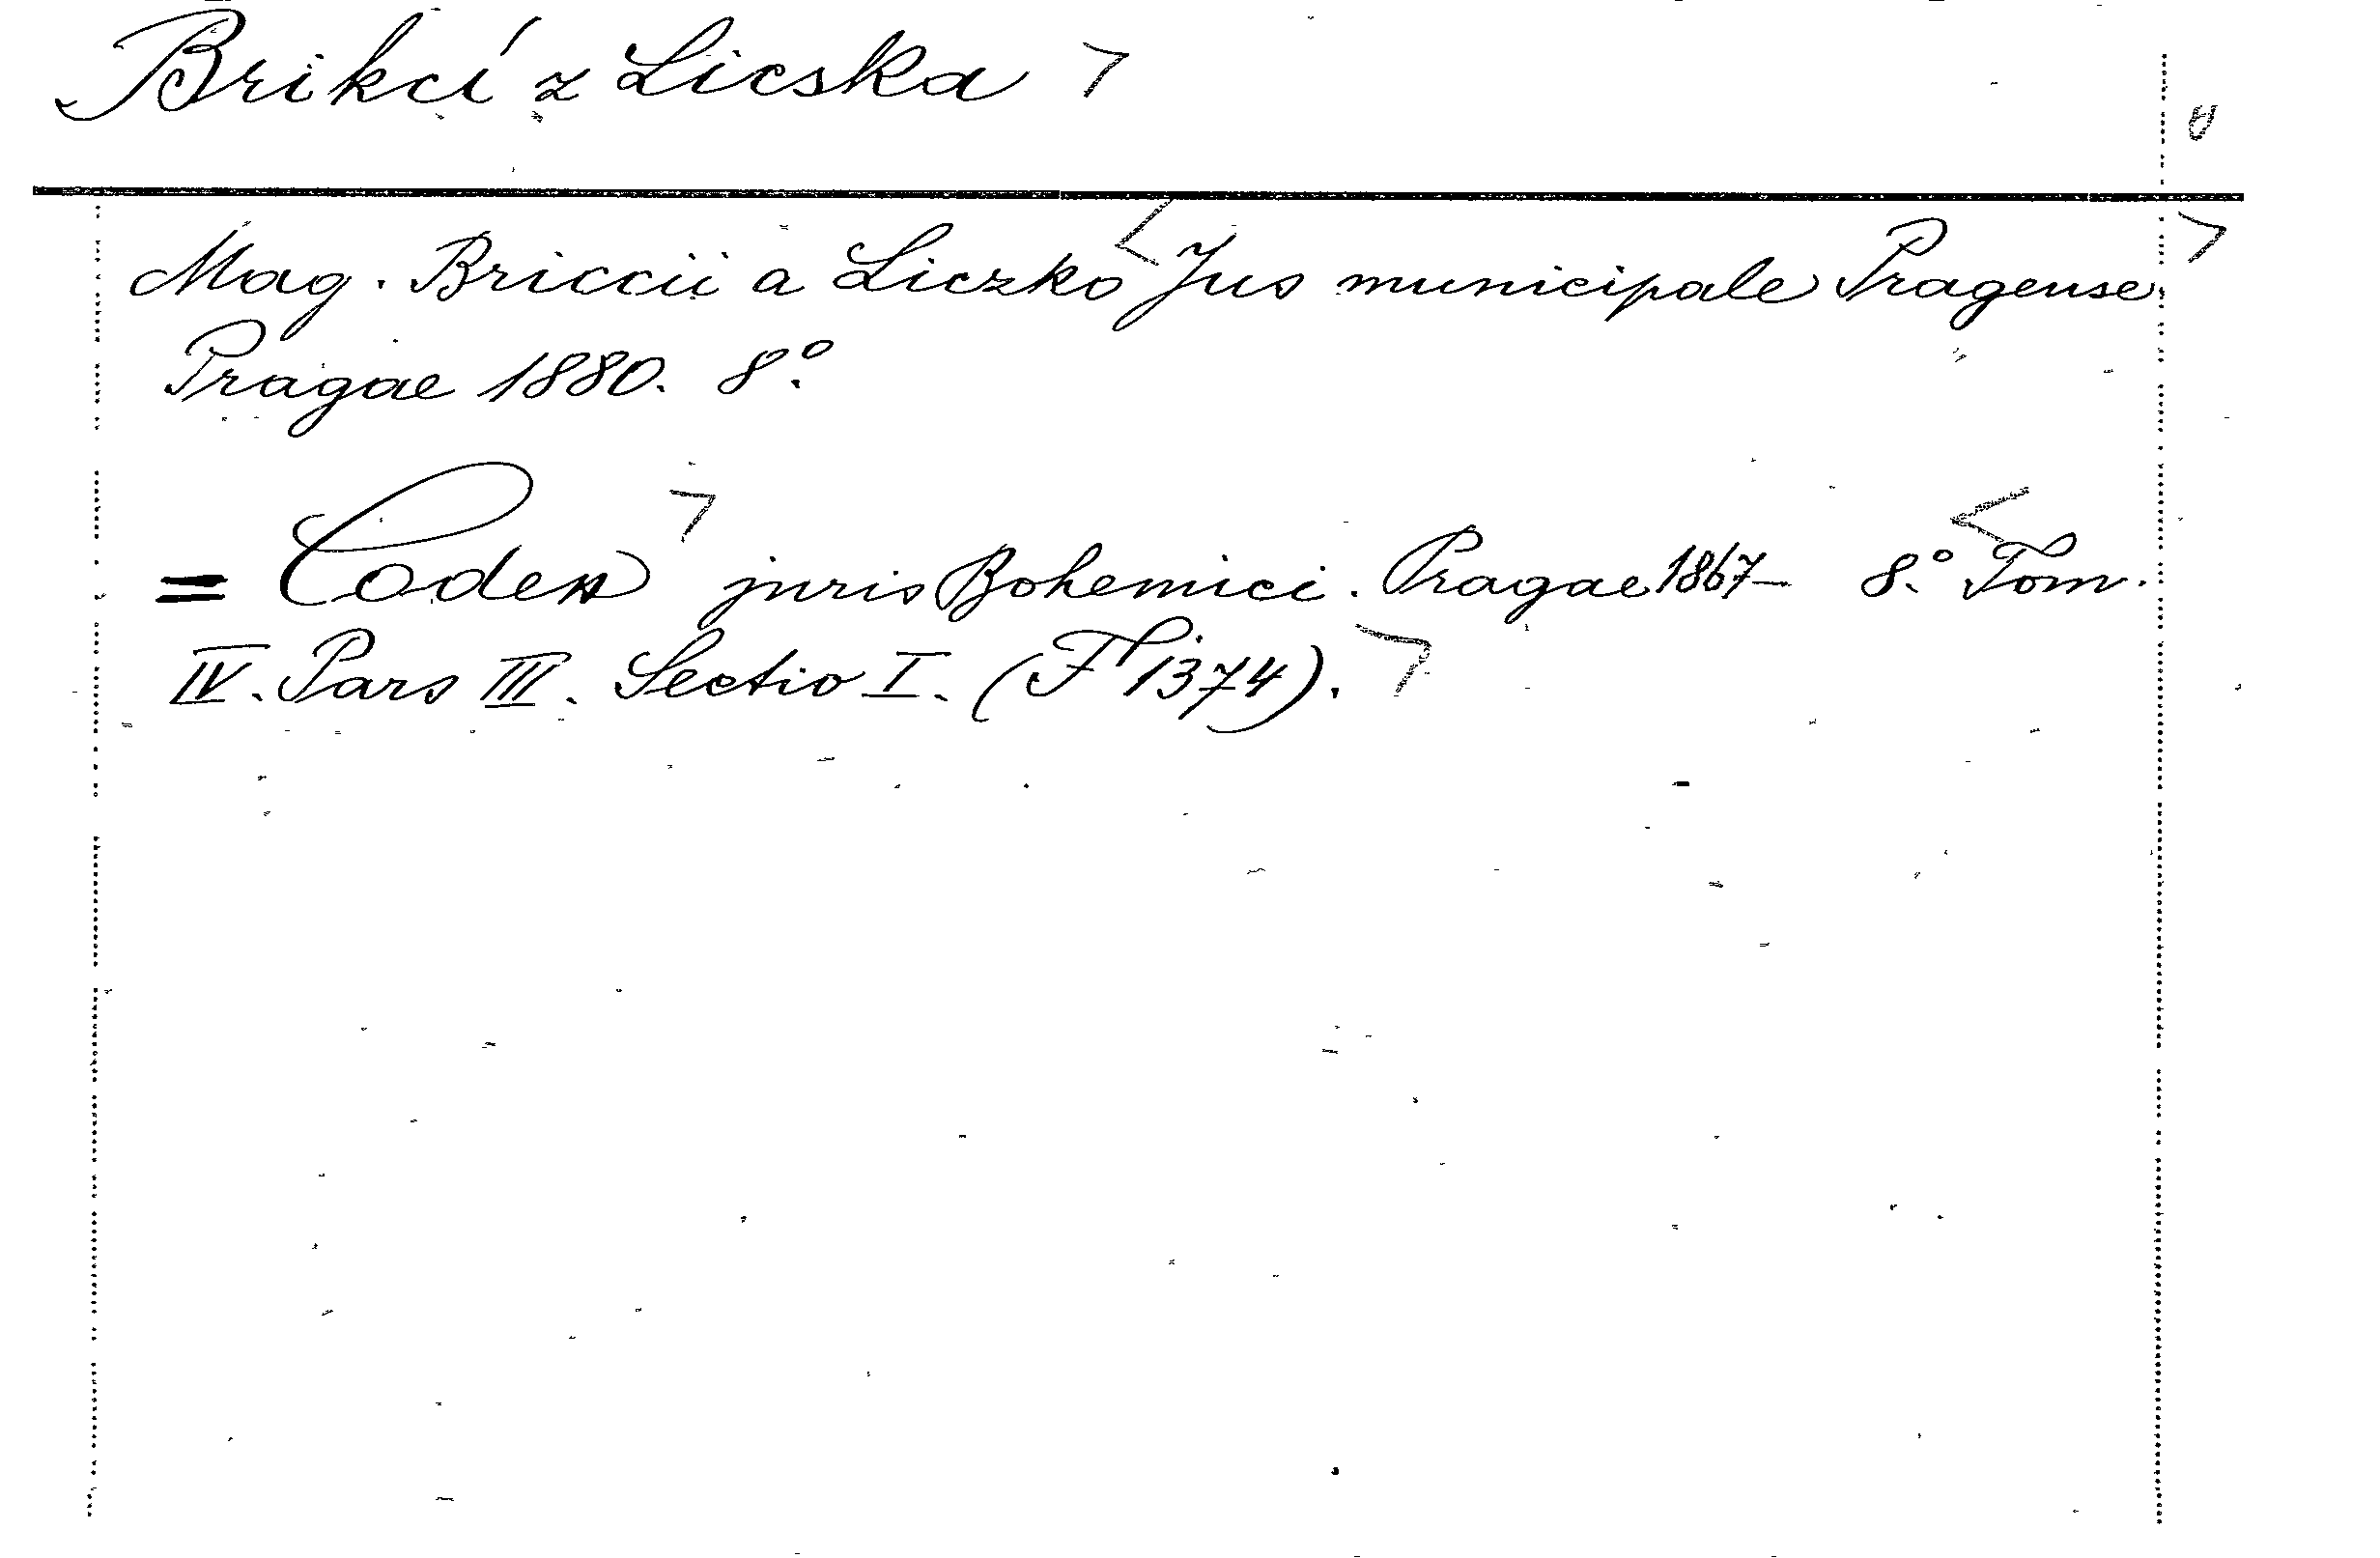 Brikcí z Licska
Mag. Briccii a Liczko Jus municipale Pragense.
Pragae 1880. 8°.
= Codex juris Bohemici. Pragae 1867- 8°. Tom.
IV. Pars III. Sectio I. (F 1374).